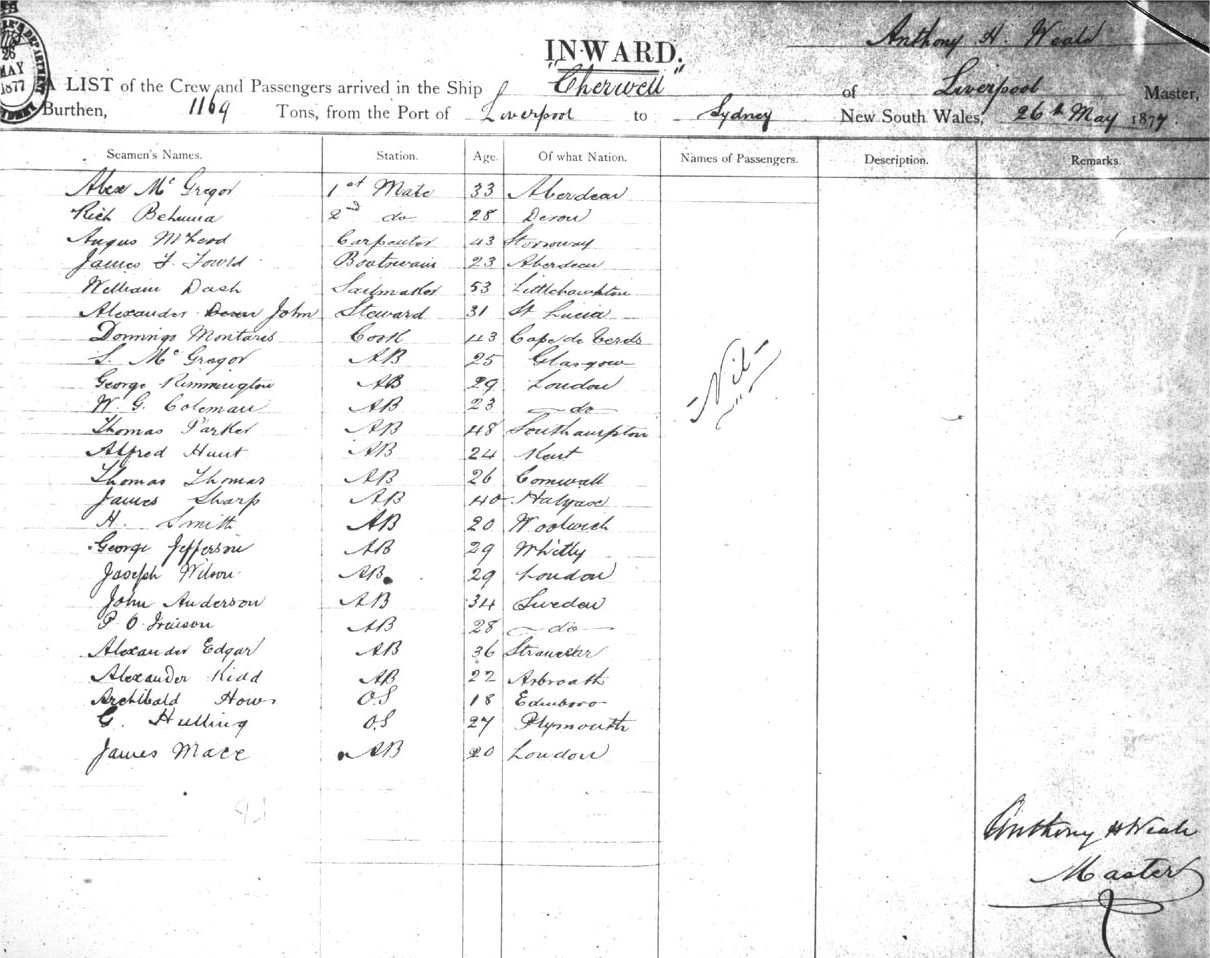 26
MAY
1877
Anthony H. Weale
INWARD.
A LIST of the Crew and Passengers arrived in the Ship "Cherwell" of Liverpool Master,
Burthen, 1169 Tons, from the Port of Liverpool to Sydney New South Wales, 26th May 1877.
Seamen's Names. Station. Age. Of what Nation. Names of Passengers. Description. Remarks.
Alex Mc Gregor 1st Mate 33 Aberdeen
Rich 2nd do 28 Devon
Angus McLeod Carpenter 43 Stornoway
James F. Boatswain 23 Aberdeen
William Dash Sailmaker 53 Littlehampton
Alexander John Steward 31 St Lucia
Domingo Montares Cook 43 Cape de Verds
L. Mc Gregor AB 25 Glasgow
George Rimmington AB 29 London
W. G. Coleman AB 23 do
Thomas Parker AB 48 Southampton
Alfred Hunt AB 24 Kent
Thomas Thomas AB 26 Cornwall
James Sharp AB 40
H. Smith AB 20 Woolwich
George Jefferson AB 29 Whitby
Joseph Wilson AB 29 London
John Anderson AB 34 Sweden
P O AB 28 do
Alexander Edgar AB 36 Stranraer
Alexander Kidd AB 22 Arbroath
Archibald How O.S 18 Edinboro
G. Hulling O.S 27 Plymouth
James Mace AB 20 London
"Nil"
Anthony H Weale
Master